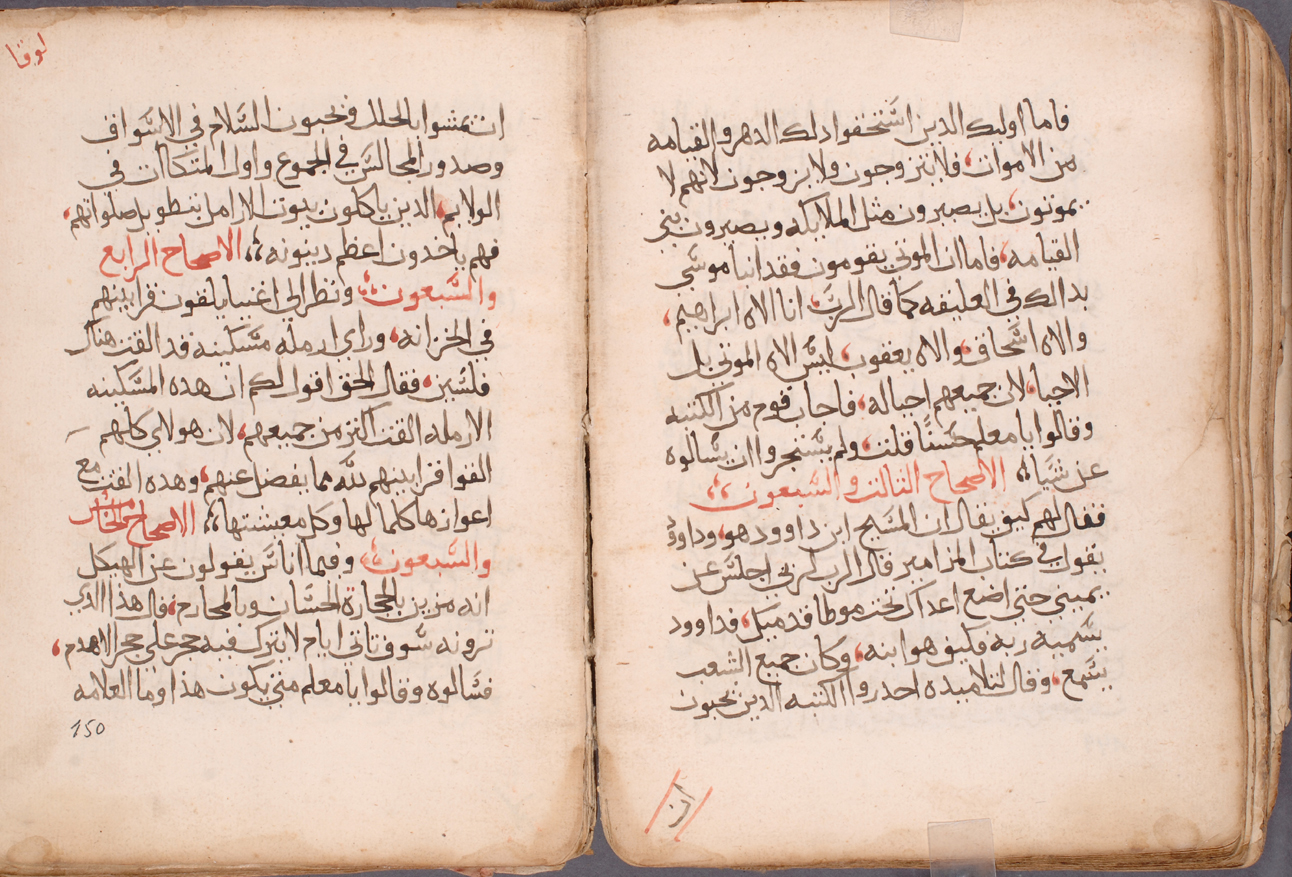 فاما اولىك الدين استحقوا دلك الدهر والقيامه
من الاموات، فلا يتزوجون ولا يزوجون لانهم لا
يموتون، بل يصيرون مثل الملايكه ويصيرون بني
القيامه، فاما ان الموتى يقومون فقد انبا موسى
بدالك في العليقه كما قال الرب، انا الاه ابراهيم،
والاه اسحاق، والاه يعقوب، ليس الاه الموتى بل
الاحيا، لان جميعهم احيا له، فاجاب قوم من الكتبه
وقالوا يا معلم حسنًا قلت، ولم يستجروا ان يسالوه
عن شيا، الاصحاح التالت والسبعون
فقال لهم كيف يقال ان المسيح ابن داوود هو، وداود
يقول في كتاب المزامير قال الرب لربي اجلس عن
يميني حتى اضع اعداك تحت موطا قدميك، فداوود
يسميه ربه فكيف هو ابنه، وكان جميع الشعب
يسمع، وقال لتلاميده احدروا الكتبه الدين يحبون
ان
لوقا
ان يمشوا بالحلل ويحبون السلام في الاسواق
وصدور المجالس في الجموع واول المتكاات في
الولايم، الدين ياكلون بيوت الارامل بتطويل صلواتهم،
فهم ياخدون اعظم دينونه، الاصحاح الرابع
والسبعون، ونظر الى اغنيا يلقون قرابينهم
في الخزانه، وراى ارمله مسكينه قد القت هناك
فلسين، فقال الحق اقول لكم ان هده المسكينه
الارمله القت اكتر من جميعهم، لان هولاي كلهم
القوا قرابينهم لله مما يفضل عنهم، وهده القت مع
اعوازها كلما لها وكل معيشتها، الاصحاح الخامس
والسبعون، وفيما اناس يقولون عن الهيكل
انه مزين بالحجارة الحسان وبالمحارم، قال هذا الدي
ترونه سوف تاتي ايام لا يترك فيه حجر على حجر الا هدم،
فسالوه وقالوا يا معلم متى يكون هذا وما العلامه
150